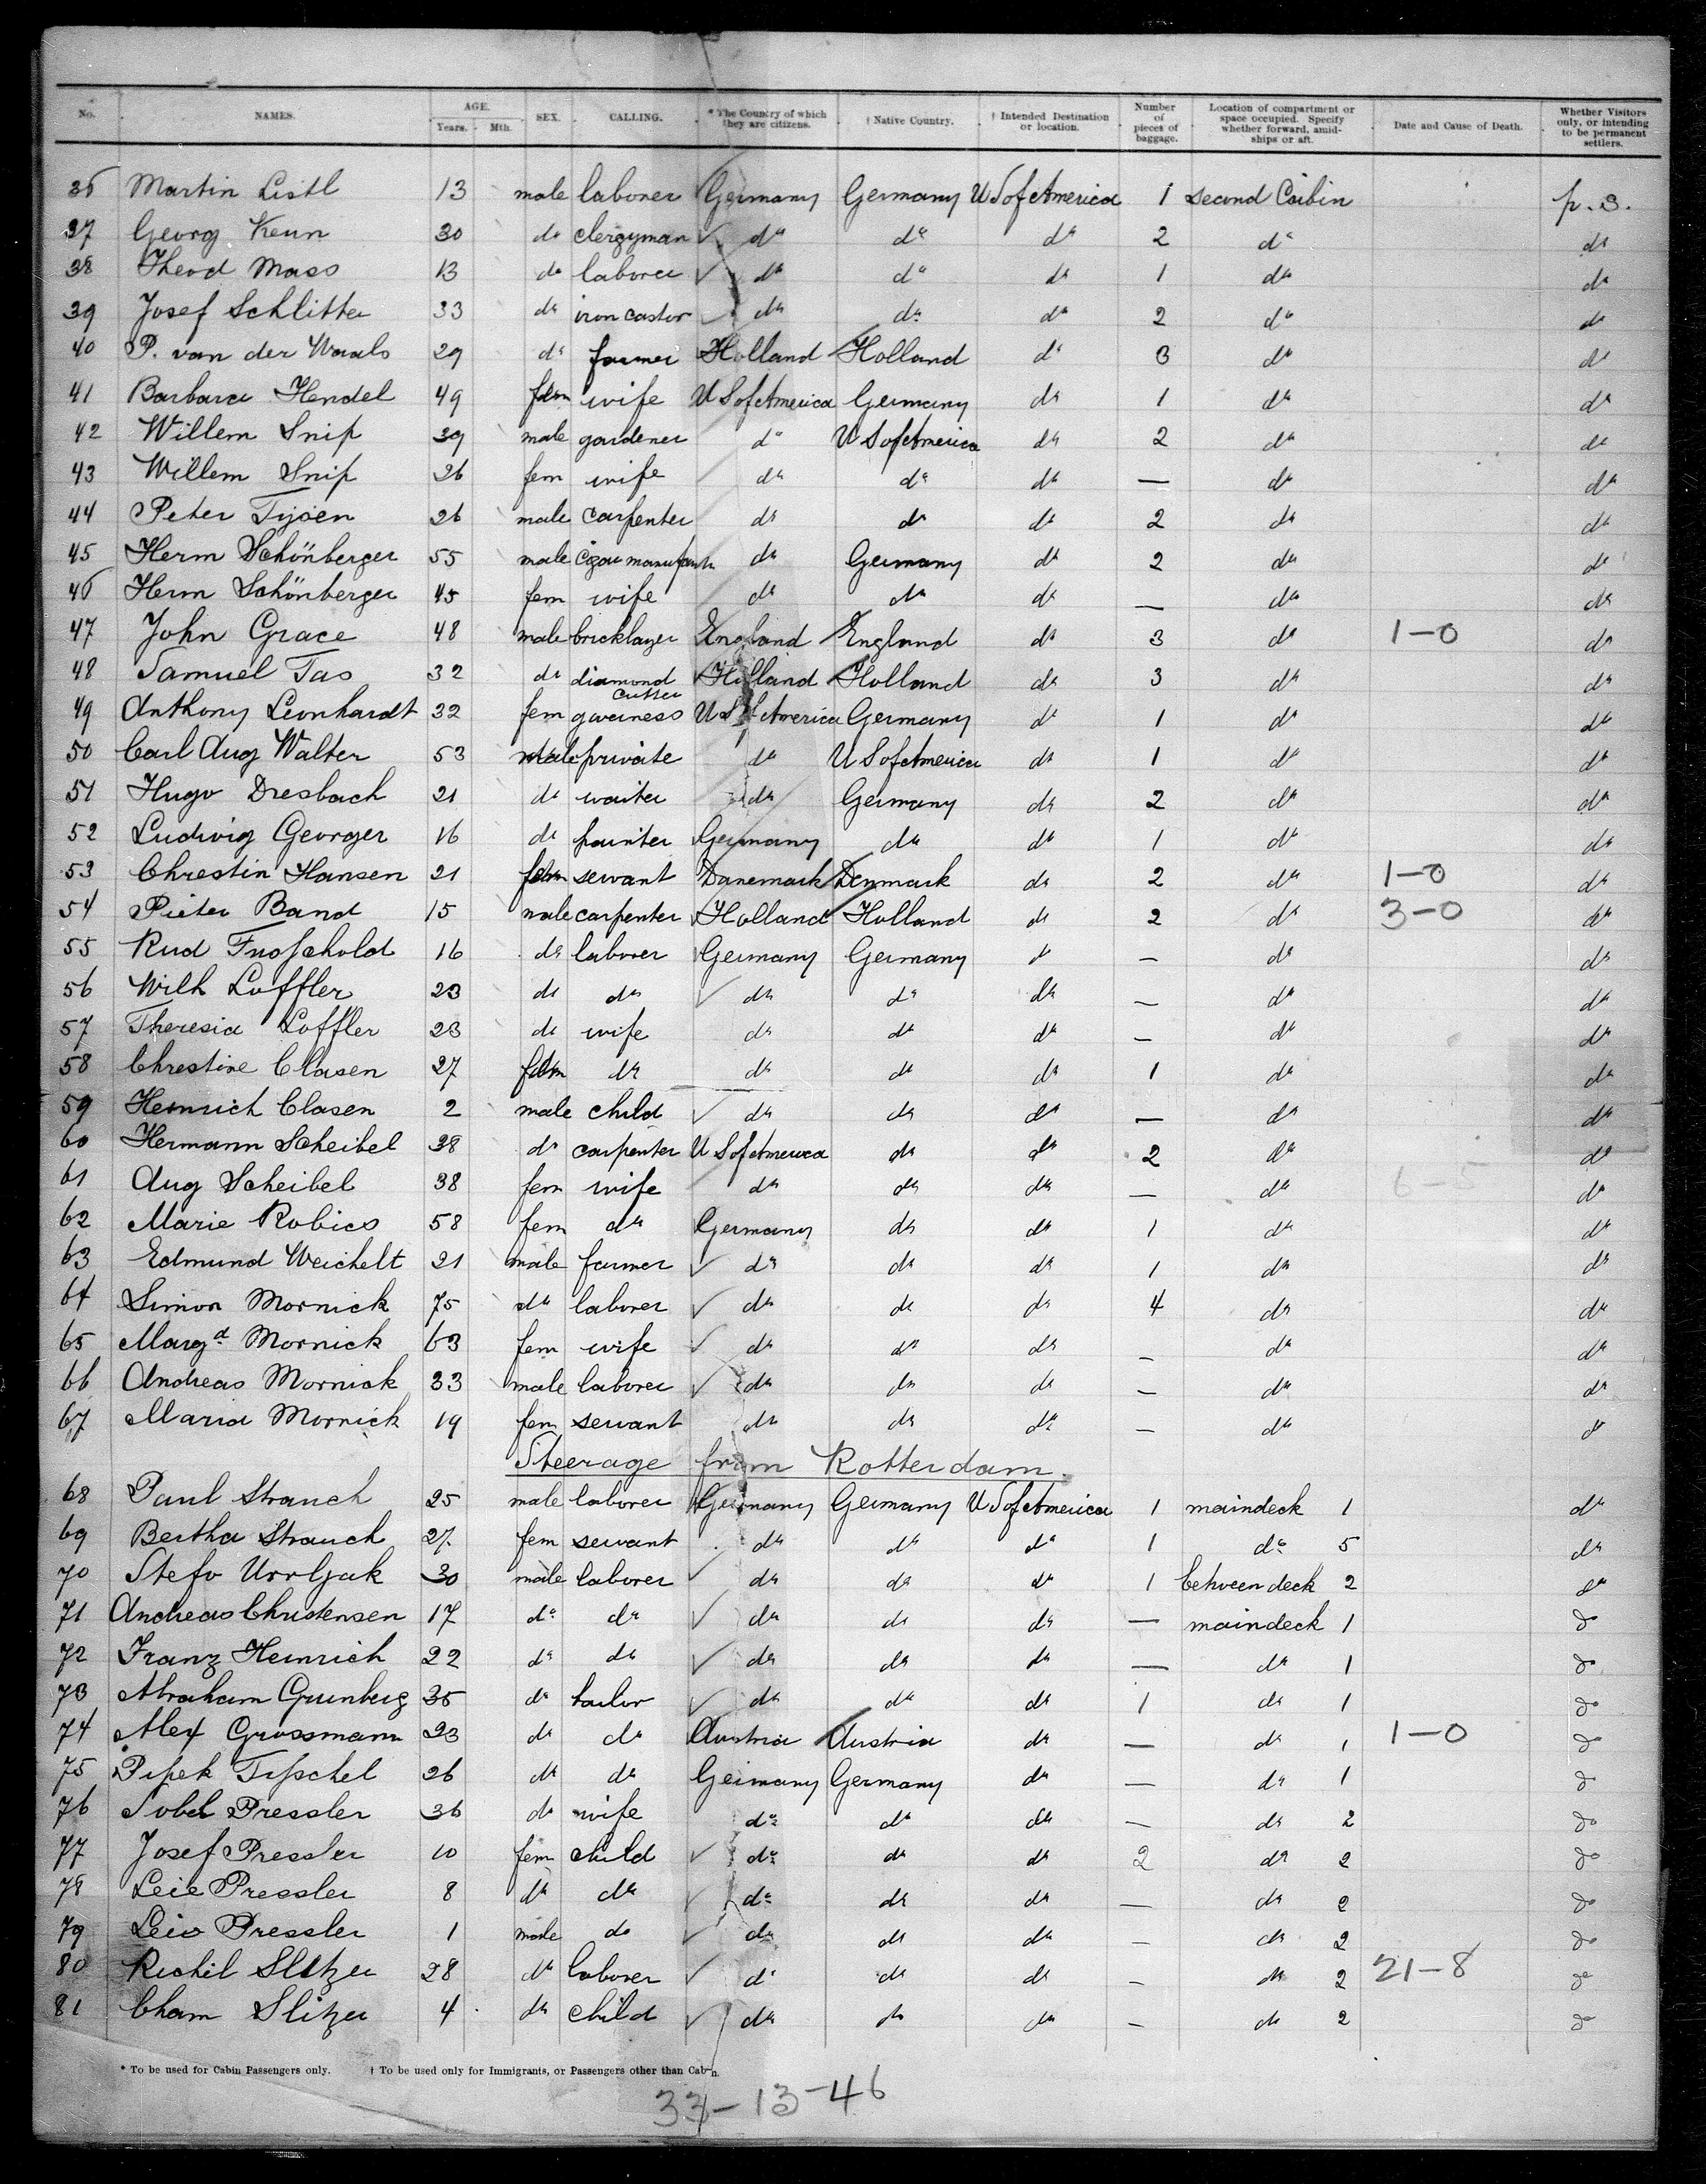 No. NAMES. AGE. Years. Mth. SEX. CALLING. * The Country of which they are citizens. † Native Country. † Intended Destination or location. Number of pieces of baggage. Location of compartment or space occupied. Specify whether forward, amidships or aft. Date and Cause of Death. Whether Visitors only, or intending to be permanent settlers.
36 Martin Listl 13 male laborer Germany Germany U S of America 1 second Cabin p. s.
37 Georg Keun 30 do clergyman do do do 2 do do
38 Theod Mass 13 do laborer do do do 1 do do
39 Josef Schlitter 33 do iron castor do do do 2 do do
40 P. van der Waals 29 do farmer Holland Holland do 3 do do
41 Barbara Hendel 49 fem wife U S of America Germany do 1 do do
42 Willem Snip 39 male gardener do U S of America do 2 do do
43 Willem Snip 26 fem wife do do do — do do
44 Peter Tysen 26 male carpenter do do do 2 do do
45 Herm Schönberger 55 male cigar manufactr do Germany do 2 do do
46 Herm Schönberger 45 fem wife do do do — do do
47 John Grace 48 male bricklayer England England do 3 do 1-0 do
48 Samuel Tas 32 do diamond cutter Holland Holland do 3 do do
49 Anthony Leonhardt 32 fem governess U S of America Germany do 1 do do
50 Carl Aug Walter 53 male private do U S of America do 1 do do
51 Hugo Dresbach 21 do waiter do Germany do 2 do do
52 Ludwig Georger 16 do painter Germany do do 1 do do
53 Chrestin Hansen 21 fem servant Danemark Denmark do 2 do 1-0 do
54 Pieter Band 15 male carpenter Holland Holland do 2 do 3-0 do
55 Rud 16 do laborer Germany Germany do — do do
56 Wilh Loffler 23 do do do do do — do do
57 Theresia Loffler 23 do wife do do do — do do
58 Chrestine Clasen 27 fem do do do do 1 do do
59 Heinrich Clasen 2 male child do do do — do do
60 Hermann Scheibel 38 do carpenter U S of America do do 2 do do
61 Aug Scheibel 38 fem wife do do do — do 6-5 do
62 Marie Robics 58 fem do Germany do do 1 do do
63 Edmund Weichelt 21 male farmer do do do 1 do do
64 Simon Mornick 75 do laborer do do do 4 do do
65 Margd Mornick 63 fem wife do do do — do do
66 Andreas Mornick 33 male laborer do do do — do do
67 Maria Mornick 19 fem servant do do do — do do
Steerage from Rotterdam.
68 Paul Strauch 25 male laborer Germany Germany U S of America 1 maindeck 1 do
69 Bertha Strauch 27 fem servant do do do 1 do 5 do
70 Stefo Urrljak 30 male laborer do do do 1 between deck 2 do
71 Andreas Christensen 17 do do do do do — maindeck 1 do
72 Franz Heinrich 22 do do do do do — do 1 do
73 Abraham Grunberg 35 do tailor do do do 1 do 1 do
74 Alex Grossmann 23 do do Austria Austria do — do 1 1-0 do
75 26 do do Germany Germany do — do 1 do
76 Sobel Pressler 36 do wife do do do — do 2 do
77 Josef Pressler 10 fem child do do do 2 do 2 do
78 Leie Pressler 8 do do do do do — do 2 do
79 Leio Pressler 1 male do do do do — do 2 do
80 Richil Slitzer 28 do laborer do do do — do 2 21-8 do
81 Cham Slitzer 4 do child do do do — do 2 do
* To be used for Cabin Passengers only. † To be used only for Immigrants, or Passengers other than Cabin.
33-13-46